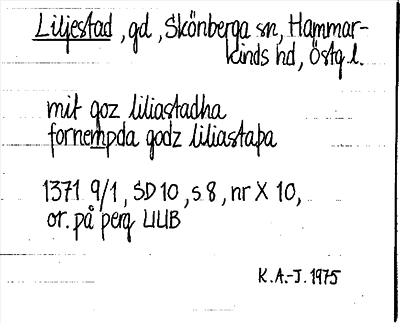 Liljestad, gd, Skönberga sn, Hammar-
kinds hd, Östg.l.
mit goz liliastadha
fornempda godz liliastaþa
1371 9/1, SD 10, s 8, nr X 10,
or. på perg UUB
K.A.-J. 1975